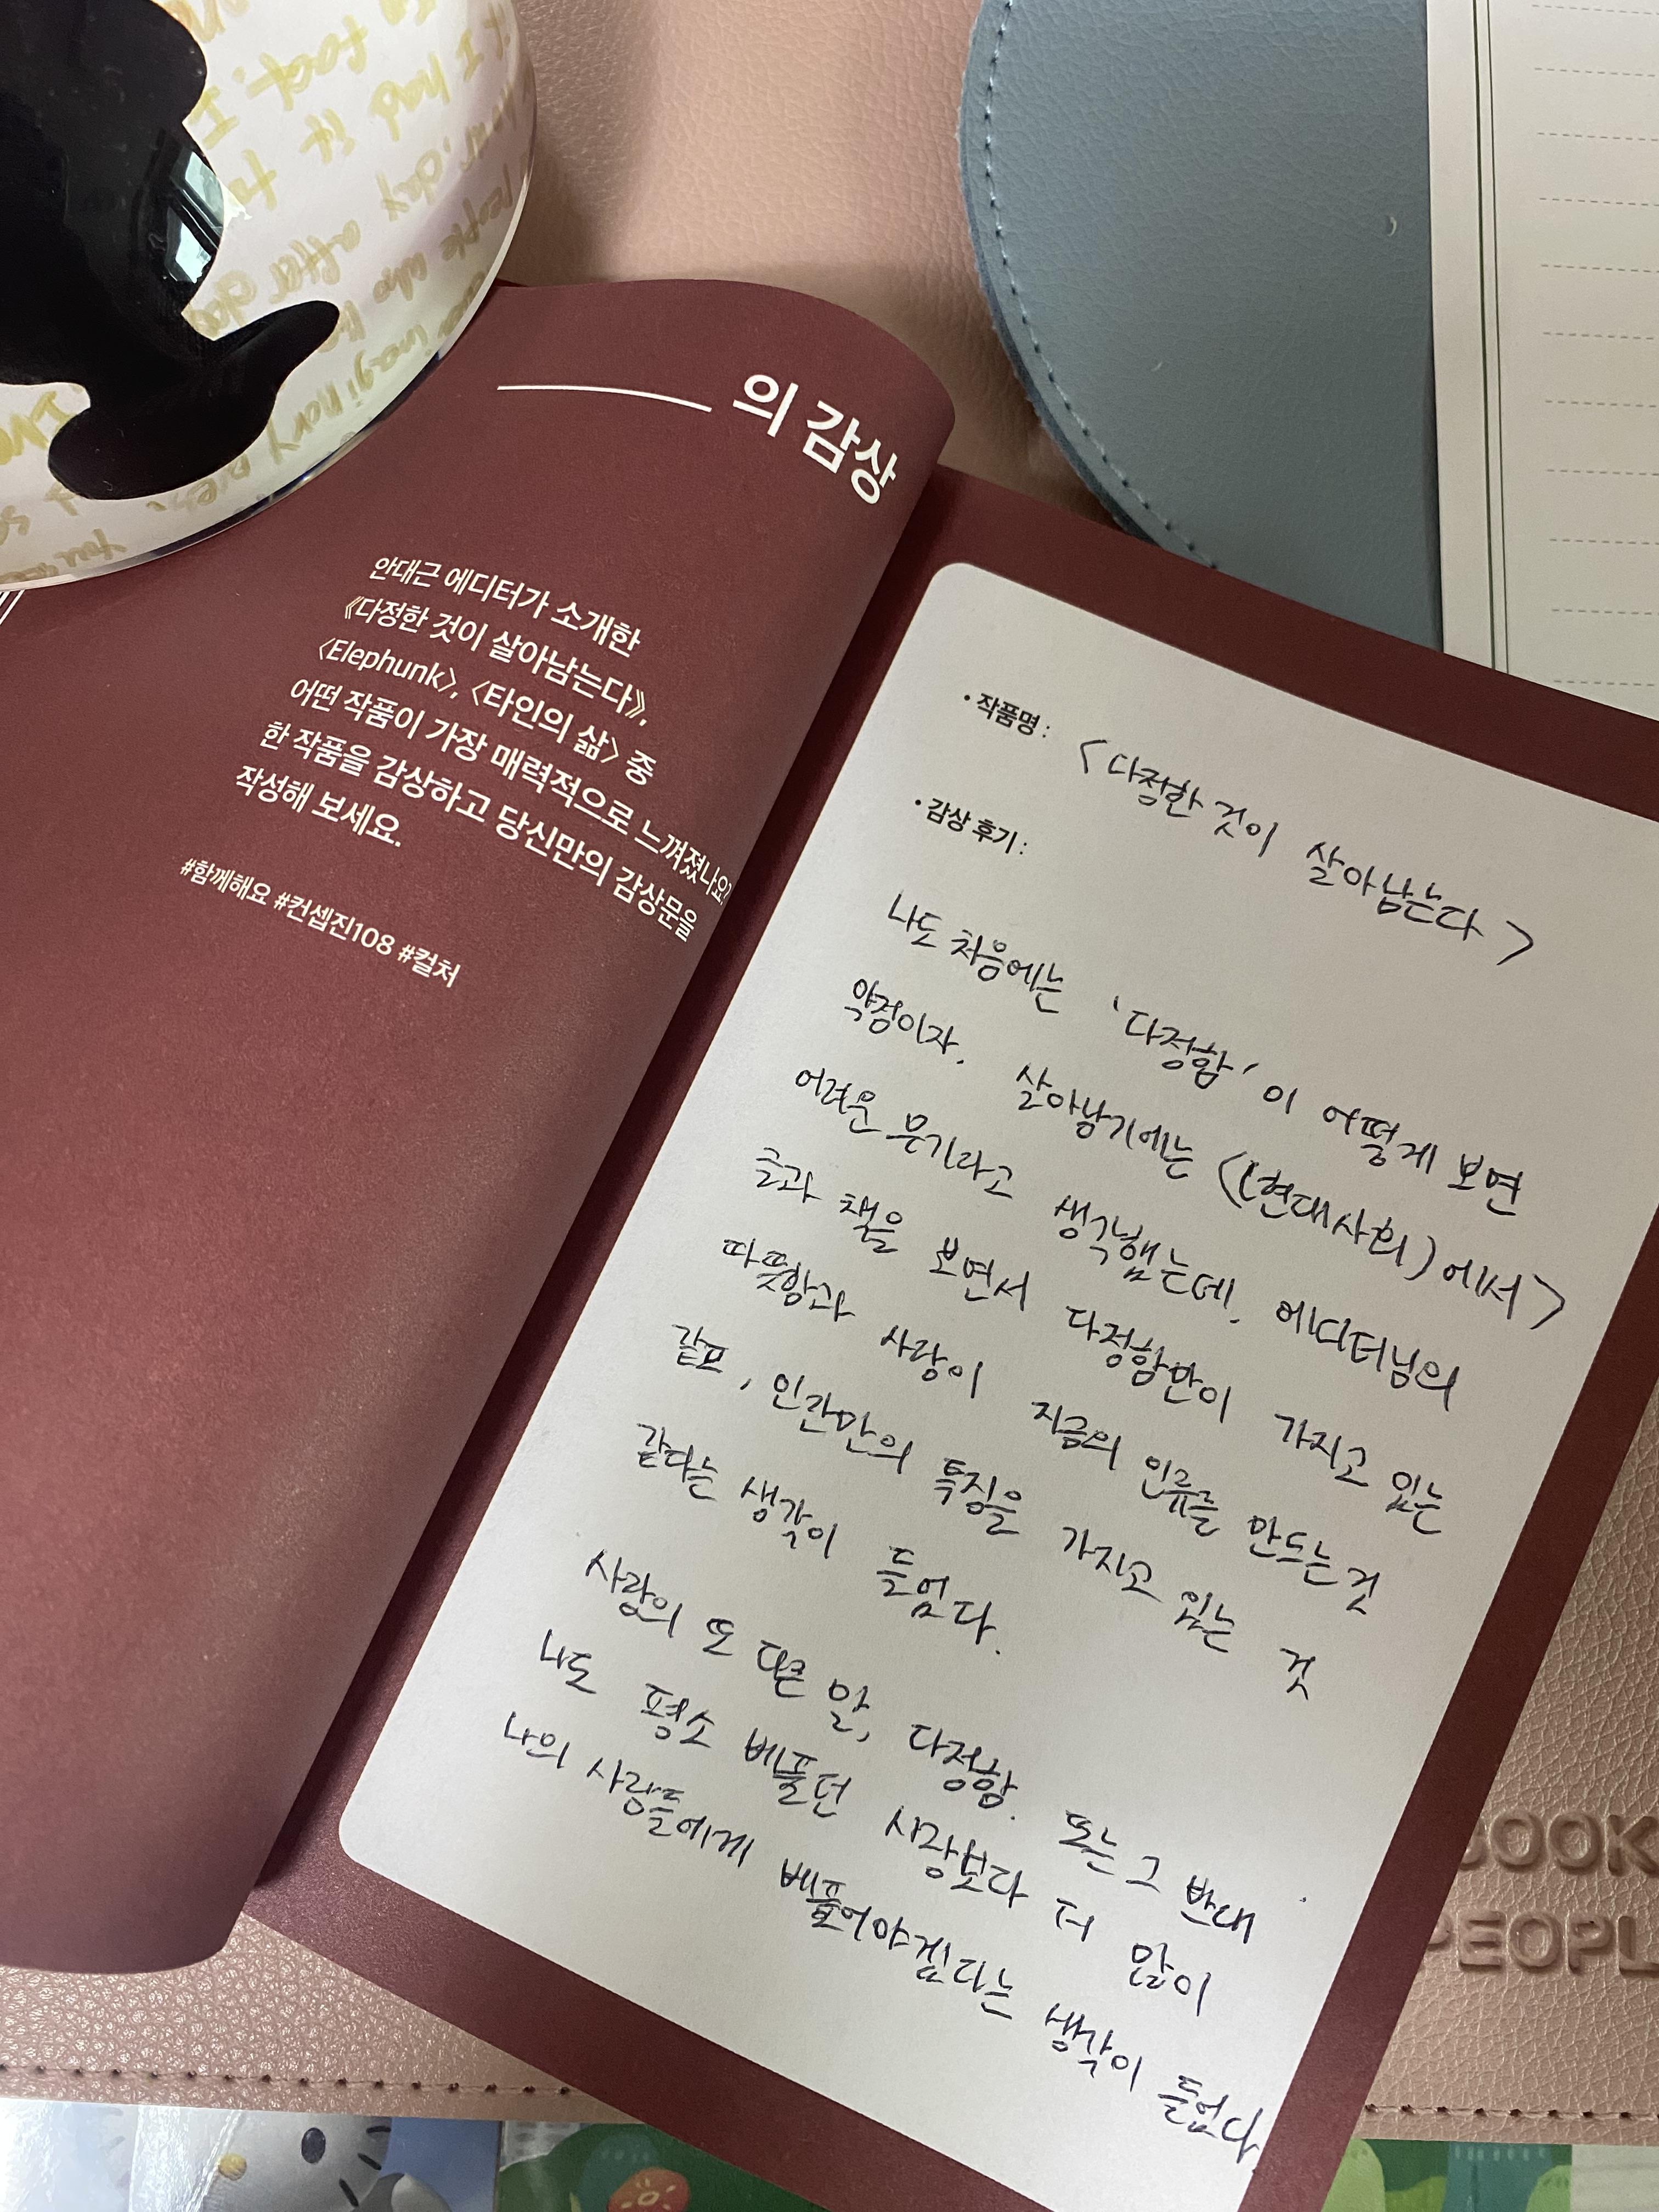 의 감상
안대근 에디터가 소개한
《다정한 것이 살아남는다》,
〈Elephunk〉, 〈타인의 삶〉 중
어떤 작품이 가장 매력적으로 느껴졌나요?
한 작품을 감상하고 당신만의 감상문을
작성해 보세요.
#함께해요 #컨셉진108 #컬처
• 작품명 : <다정한 것이 살아남는다>
• 감상 후기 :
나도 처음에는 '다정함'이 어떻게 보면
약점이자, 살아남기에는 <(현대사회)에서>
어려운 무기라고 생각했는데, 에디터님의
글과 책을 보면서 다정함만이 가지고 있는
따뜻함과 사랑이 지금의 인류를 만드는 것
같고, 인간만의 특징을 가지고 있는 것
같다는 생각이 들었다.
사랑의 또 다른 말, 다정함. 또는 그 반대.
나도 평소 베풀던 사랑보다 더 많이
나의 사람들에게 베풀어야겠다는 생각이 들었다
BOOK
PEOPL
I had it to
day after day
people who